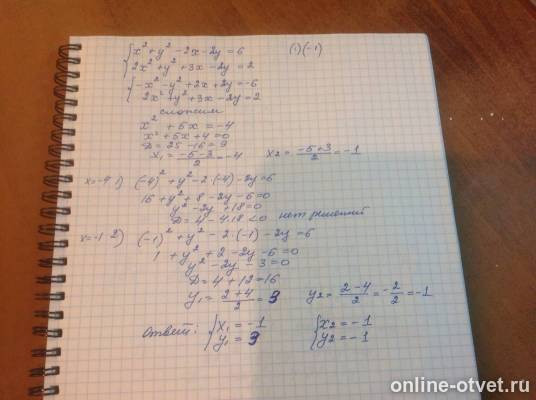 {x² + y² - 2x - 2y = 6 (·)(-1)
{2x² + y² + 3x - 2y = 2
{-x² - y² + 2x + 2y = -6
{2x² + y² + 3x - 2y = 2
сложим
x² + 5x = -4
x² + 5x + 4 = 0
D = 25 - 16 = 9
x₁ = (-5-3)/2 = -4 x₂ = (-5+3)/2 = -1
x=-4 1) (-4)² + y² - 2·(-4) - 2y = 6
16 + y² + 8 - 2y - 6 = 0
y² - 2y + 18 = 0
D = 4 - 4·18 < 0 нет решений
x=-1 2) (-1)² + y² - 2·(-1) - 2y = 6
1 + y² + 2 - 2y - 6 = 0
y² - 2y - 3 = 0
D = 4 + 12 = 16
y₁ = (2+4)/2 = 3 y₂ = (2-4)/2 = -2/2 = -1
Ответ: {x₁ = -1 {x₂ = -1
{y₁ = 3 {y₂ = -1
online-otvet.ru